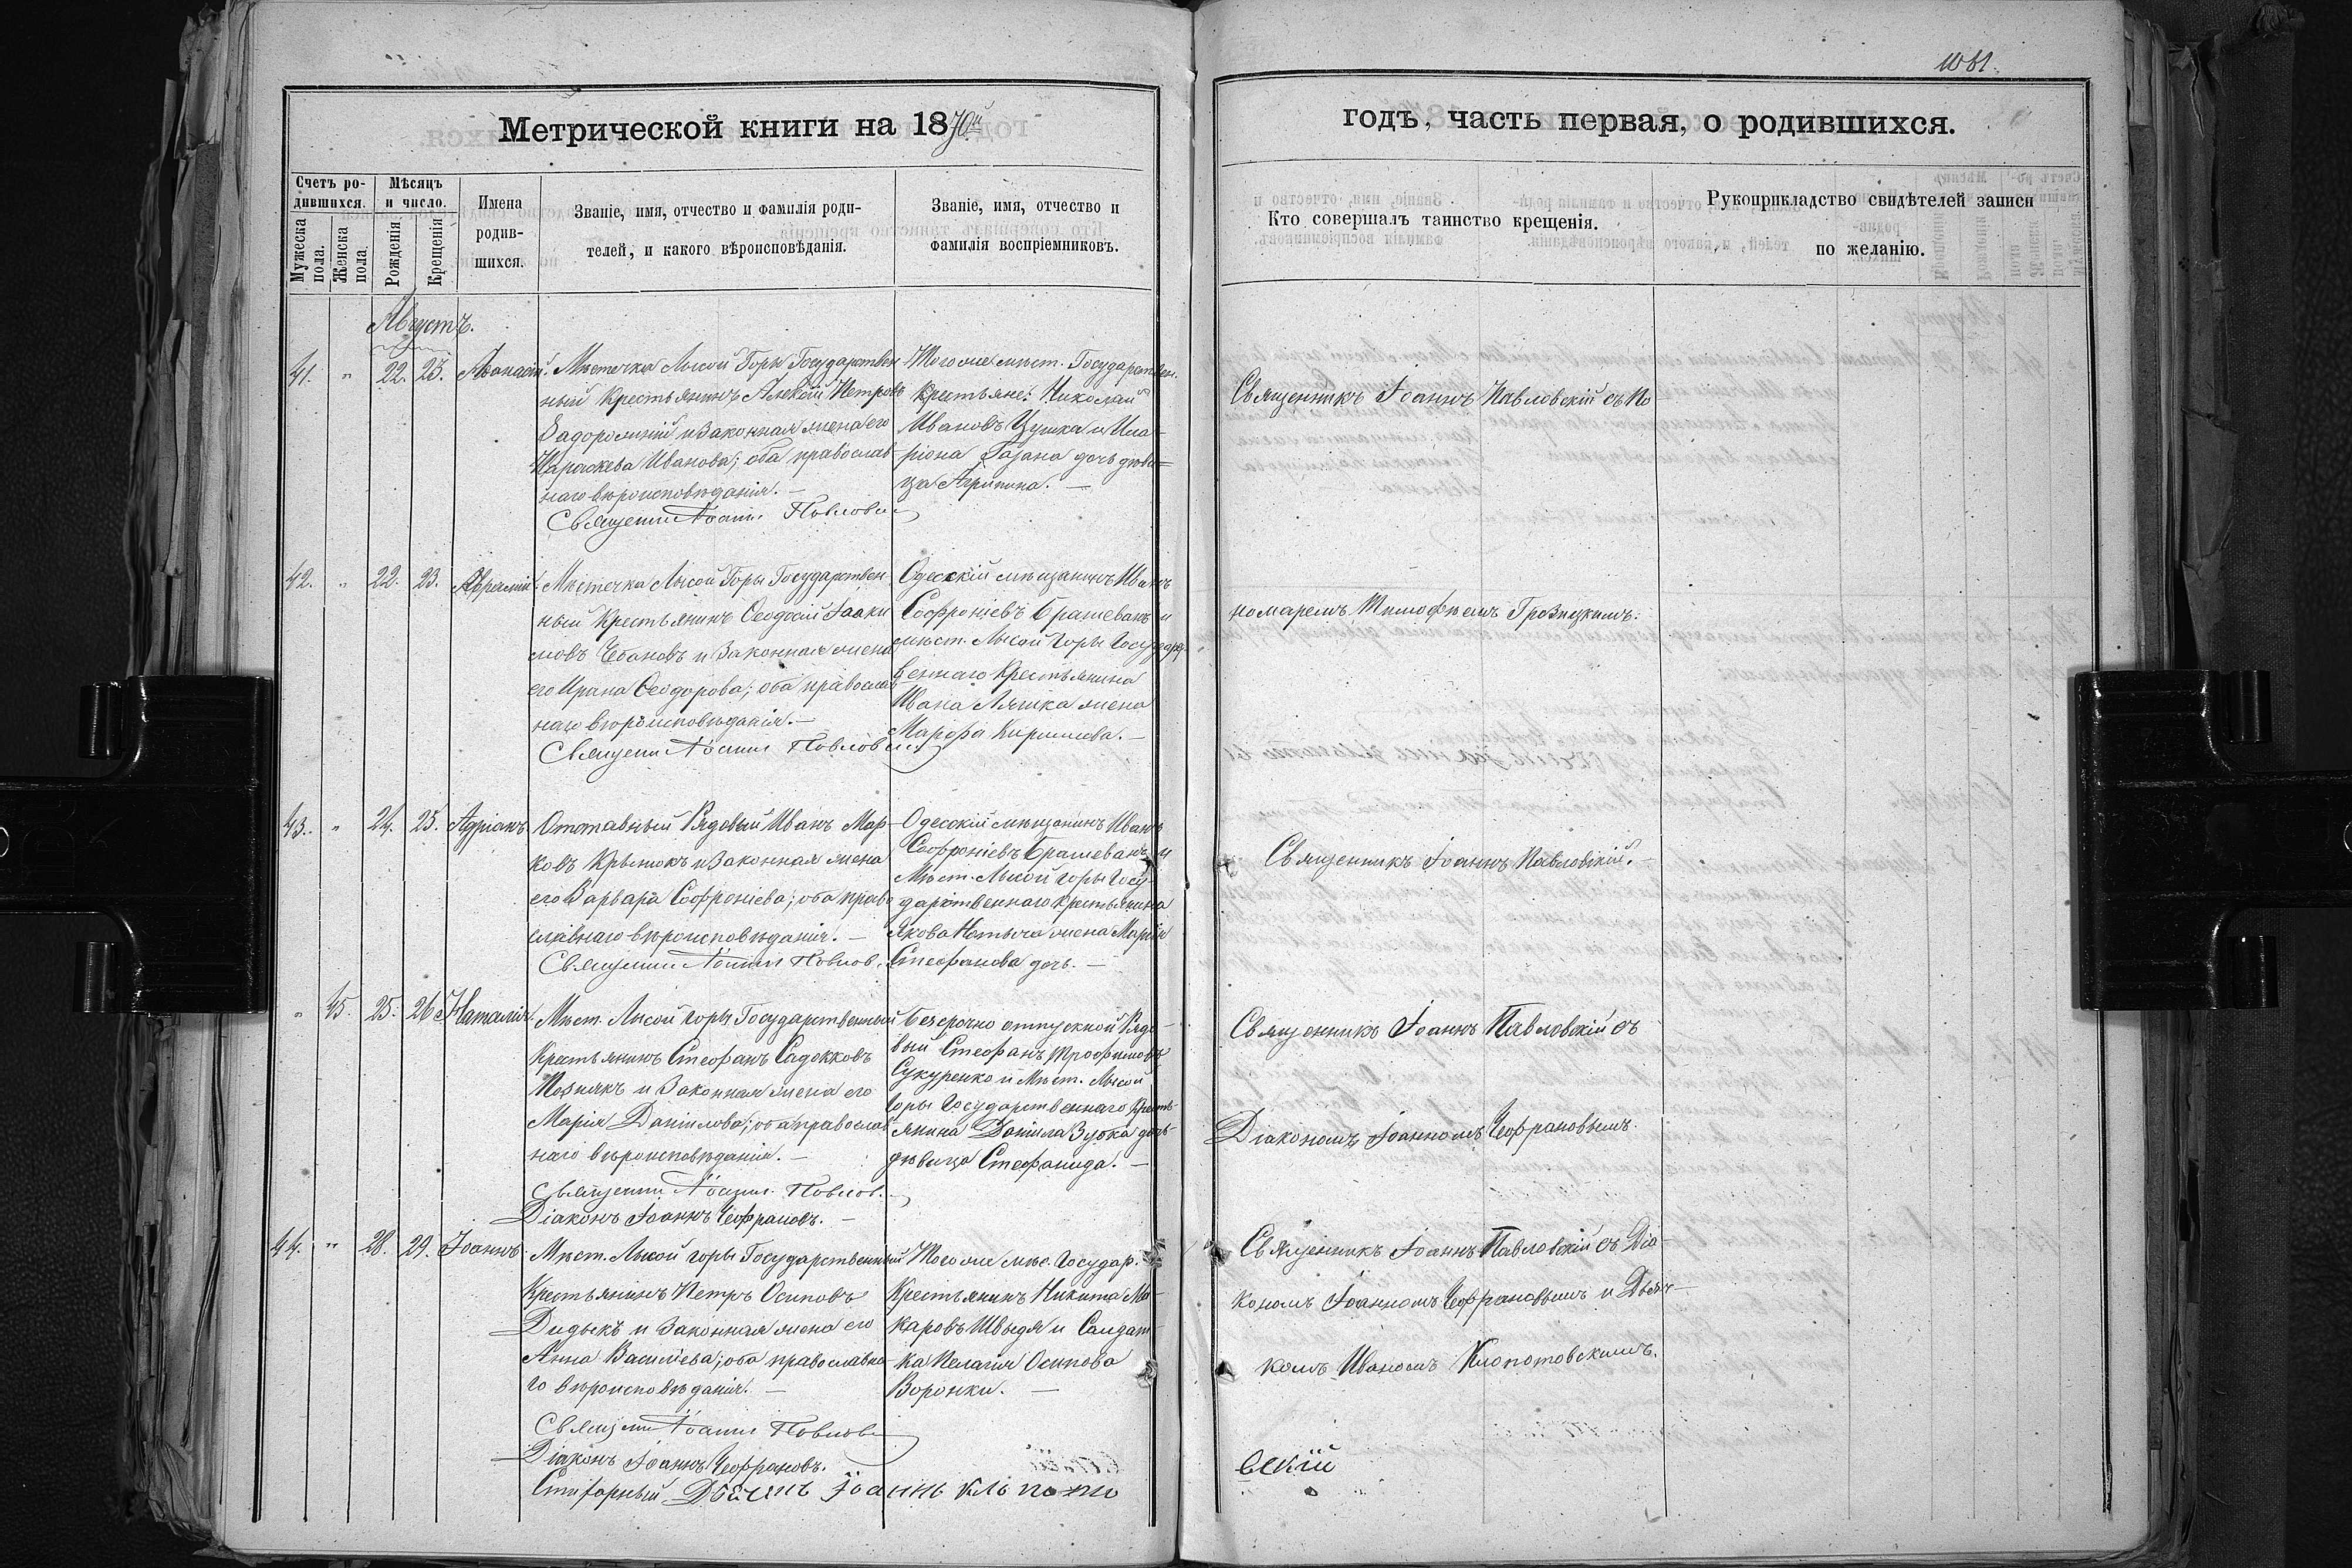 1061.
Метрической книги на 1870й
годъ, часть первая, о родившихся.
Счетъ родившихся.
Мужеска пола.
Женска пола.
Мѣсяцъ и число.
Рожденія
Крещенія
Имена родившихся.
Званіе, имя, отчество и фамилія родителей, и какого вѣроисповѣданія.
Званіе, имя, отчество и фамилія воспріемниковъ.
Кто совершалъ таинство крещенія.
Рукоприкладство свидѣтелей записи
по желанію.
Августъ.
41. " 22. 23. Аѳанасій.
Мѣстечка Лысой Горы Государствен
ный Крестьянинъ Алексій Петровъ
Задорожній и Законная жена его
Параскева Иванова; оба православ
наго вѣроисповѣданія. —
Священникъ Іоаннъ Павловскій
Того же мѣст. Государствен.
крестьяне: Николай
Ивановъ Цушка и Ила-
ріона дочь дѣви=
ца Агрипина. —
Священникъ Іоаннъ Павловскій съ По
42. " 22. 23.
Мѣстечка Лысой Горы Государствен
ный Крестьянинъ Ѳеодосій Іоаки
мовъ Чебановъ и Законная жена
его Ирина Ѳеодорова; оба православ
наго вѣроисповѣданія. —
Священникъ Іоаннъ Павловскій
Одесскій мѣщанинъ Иванъ
Софроніевъ Брашеванъ и
мѣст. Лысой Горы Государ
веннаго Крестьянина
Ивана Ляшка жена
Марѳа Кирилова. —
номаремъ Тимофѣемъ Грозицкимъ.
43. " 24. 25. Адріанъ.
Отставный Рядовый Иванъ Мар-
ковъ и Законная жена
его Варвара Софроніева; оба право
славнаго вѣроисповѣданія. —
Священникъ Іоаннъ Павлов.
Одесскій мѣщанинъ Иванъ
Софроніевъ Брашеванъ и
Мѣст. Лысой горы Госу-
дарственнаго крестьянина
Якова жена Марія
Стефанова дочь. —
Священникъ Іоаннъ Павловскій.
" 45. 25. 26 Наталія.
Мѣст. Лысой горы Государственный
Крестьянинъ Стефанъ
Познякъ и Законная жена его
Марія Даніилова; оба православ
наго вѣроисповѣданія. —
Священникъ Іоаннъ Павлов.
Діаконъ Іоаннъ Чефрановъ. —
Безсрочно отпускной Рядо-
вый Стефанъ Трофимовъ
Сукуренко и Мѣст. Лысой
горы Государственнаго Кресть-
янина Даніила Зубка дочь
дѣвица Стефанида. —
Священникъ Іоаннъ Павловскій съ
Діакономъ Іоанномъ Чефрановымъ.
44. " 28. 29. Іоаннъ.
Мѣст. Лысой горы Государственный
Крестьянинъ Петръ Осиповъ
Дидыкъ и Законная жена его
Анна Василіева; оба православна
го вѣроисповѣданія. —
Священникъ Іоаннъ Павлов
Діаконъ Іоаннъ Чефрановъ.
Того же мѣс. Государ.
Крестьянинъ Никита Ма-
каровъ Швыдя и Салдат-
ка Пелагія Осипова
Воронки. —
Священникъ Іоаннъ Павловскій съ Діа-
кономъ Іоанномъ Чефрановымъ и Дьяч-
комъ Иваномъ Клопотовскимъ.
Дьячикъ Іоаннъ Клопото
вскій